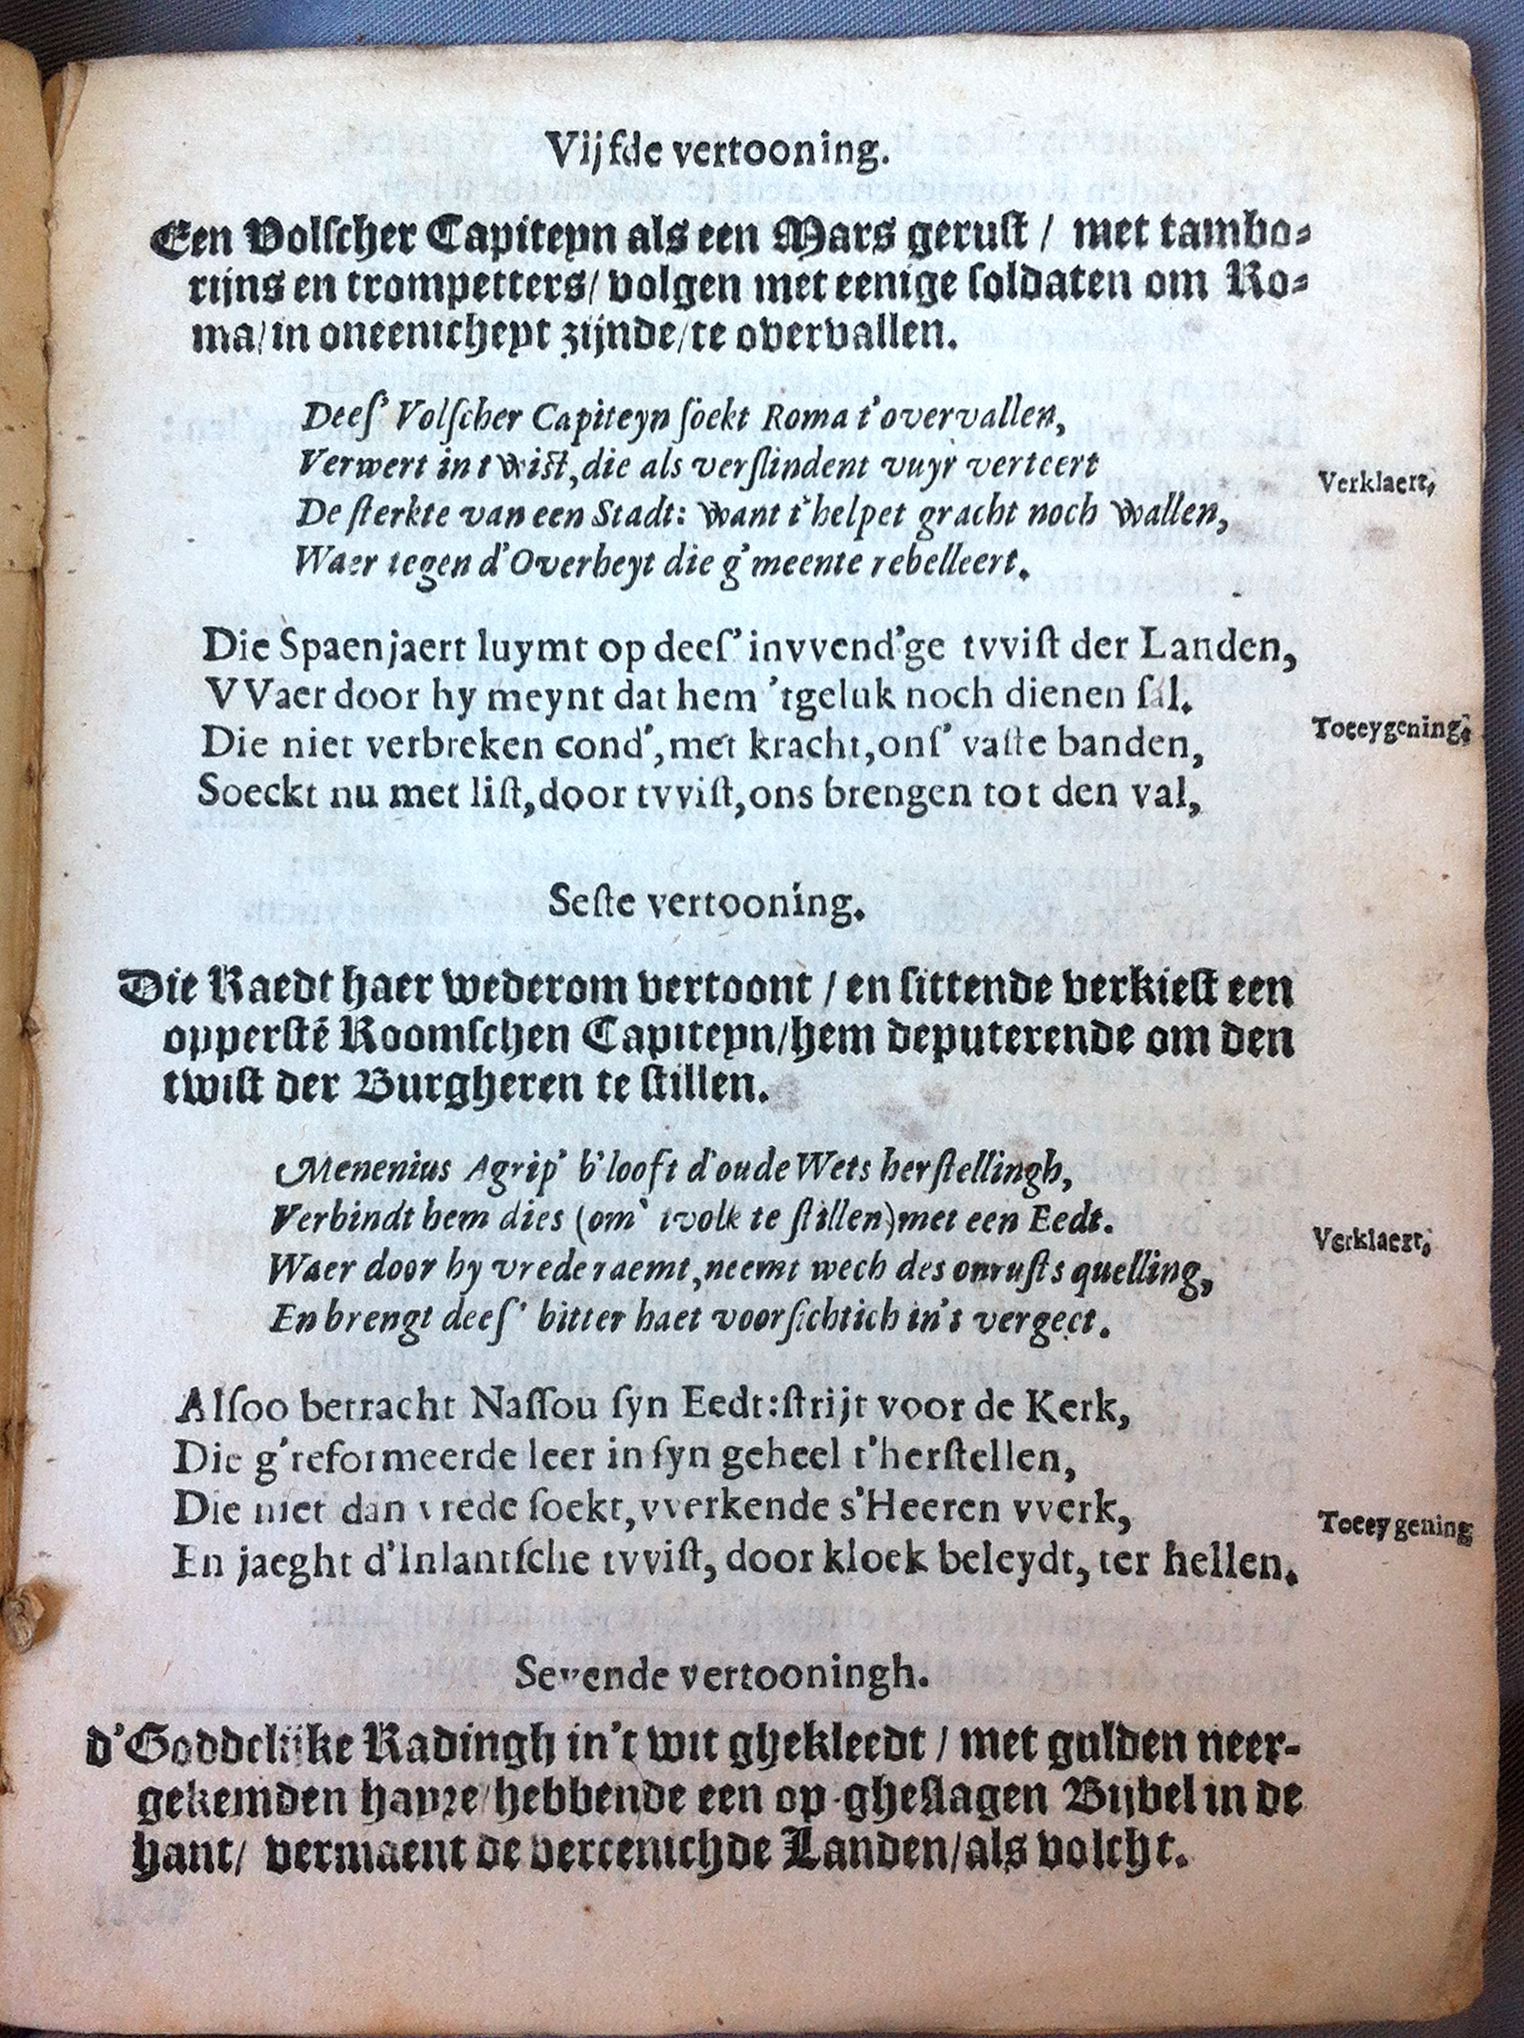 Vijfde vertooning.
Een Volscher Capiteyn als een Mars gerust / met tambo-
rijns en trompetters/ volgen met eenige soldaten om Ro-
ma/ in oneenicheyt zijnde/ te overvallen.
Deeſ' Volſcher Capiteyn ſoekt Roma t'overvallen,
Verwert in twiſt, die als verſlindent vuyr verteert
Verklaert,
De ſterkte van een Stadt: want t'helpet gracht noch wallen,
Waer tegen d'Overheyt die g'meente rebelleert.
Die Spaenjaert luymt op deeſ' invvend'ge tvviſt der Landen,
VVaer door hy meynt dat hem 'tgeluk noch dienen ſal.
Toeeygening,
Die niet verbreken cond', met kracht, onſ' vaſte banden,
Soeckt nu met liſt, door tvviſt, ons brengen tot den val,
Seſte vertooning.
Die Raedt haer wederom vertoont / en ſittende verkieſt een
opperſtē Roomſchen Capiteyn/ hem deputerende om den
twiſt der Burgheren te ſtillen.
Menenius Agrip' b'looft d'oude Wets herſtellingh,
Verbindt hem dies (om' tvolk te ſtillen) met een Eedt.
Verklaert,
Waer door hy vrede raemt, neemt wech des onruſts quelling,
En brengt deeſ' bitter haet voorſichtich in't vergeet.
Alſoo betracht Naſſou ſyn Eedt: ſtrijt voor de Kerk,
Die g'reformeerde leer in ſyn geheel t'herſtellen,
Die niet dan vrede ſoekt, vverkende s'Heeren vverk,
Toeeygening
En jaeght d'Inlantſche tvviſt, door kloek beleydt, ter hellen.
Sevende vertooningh.
d'Goddelijke Radingh in't wit ghekleedt / met gulden neer-
gekemden hayre/ hebbende een op-gheſlagen Bijbel in de
hant/ vermaent de vereenichde Landen/ als volcht.